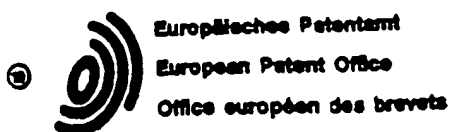 Europäisches Patentamt
European Patent Office
Office européen des brevets